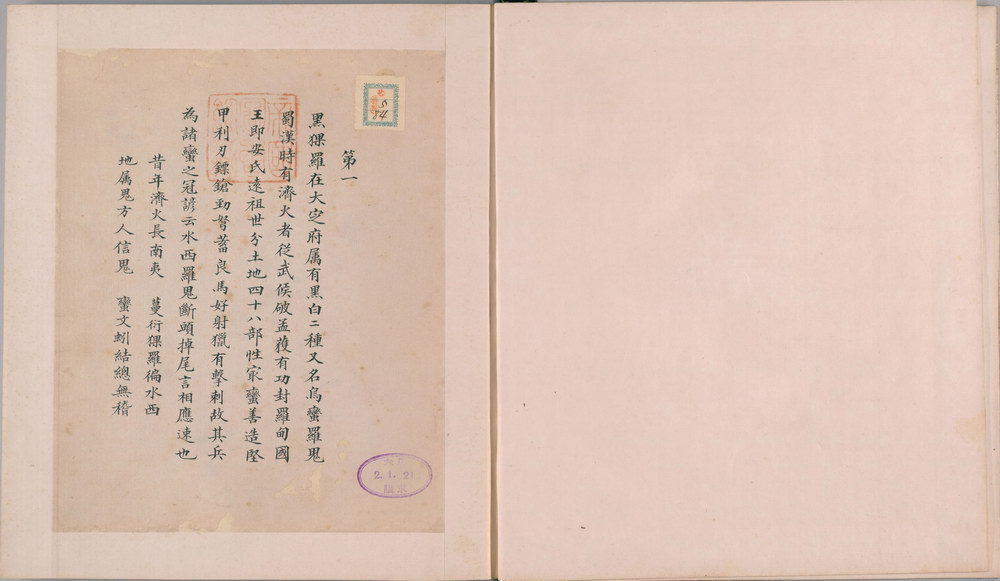 第一
黑猓羅在大定府属有黑白二種又名烏蠻羅鬼
蜀漢時有濟火者從武侯破孟獲有功封羅甸國
王即安氏遠祖世分土地四十八部性㝡蠻善造堅
甲利刃鏢鎗勁弩蓄良馬好射獵有擊刺故其兵
為諸蠻之冠諺云水西羅鬼斷頭掉尾言相應速也
昔年濟火長南夷 蔓衍猓羅徧水西
地属鬼方人信鬼 蠻文蚓結總無稽
54
2.1.21